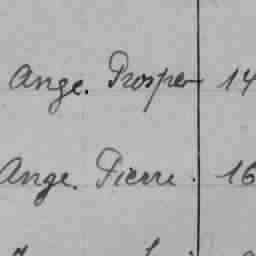 Ange. Prosper 14
Ange. Pierre. 16